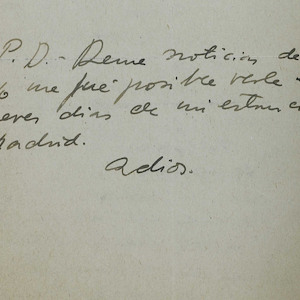 P. D. - Deme noticias de
o me fué posible verle
eves dias de mi estanci
adrid.
Adios.